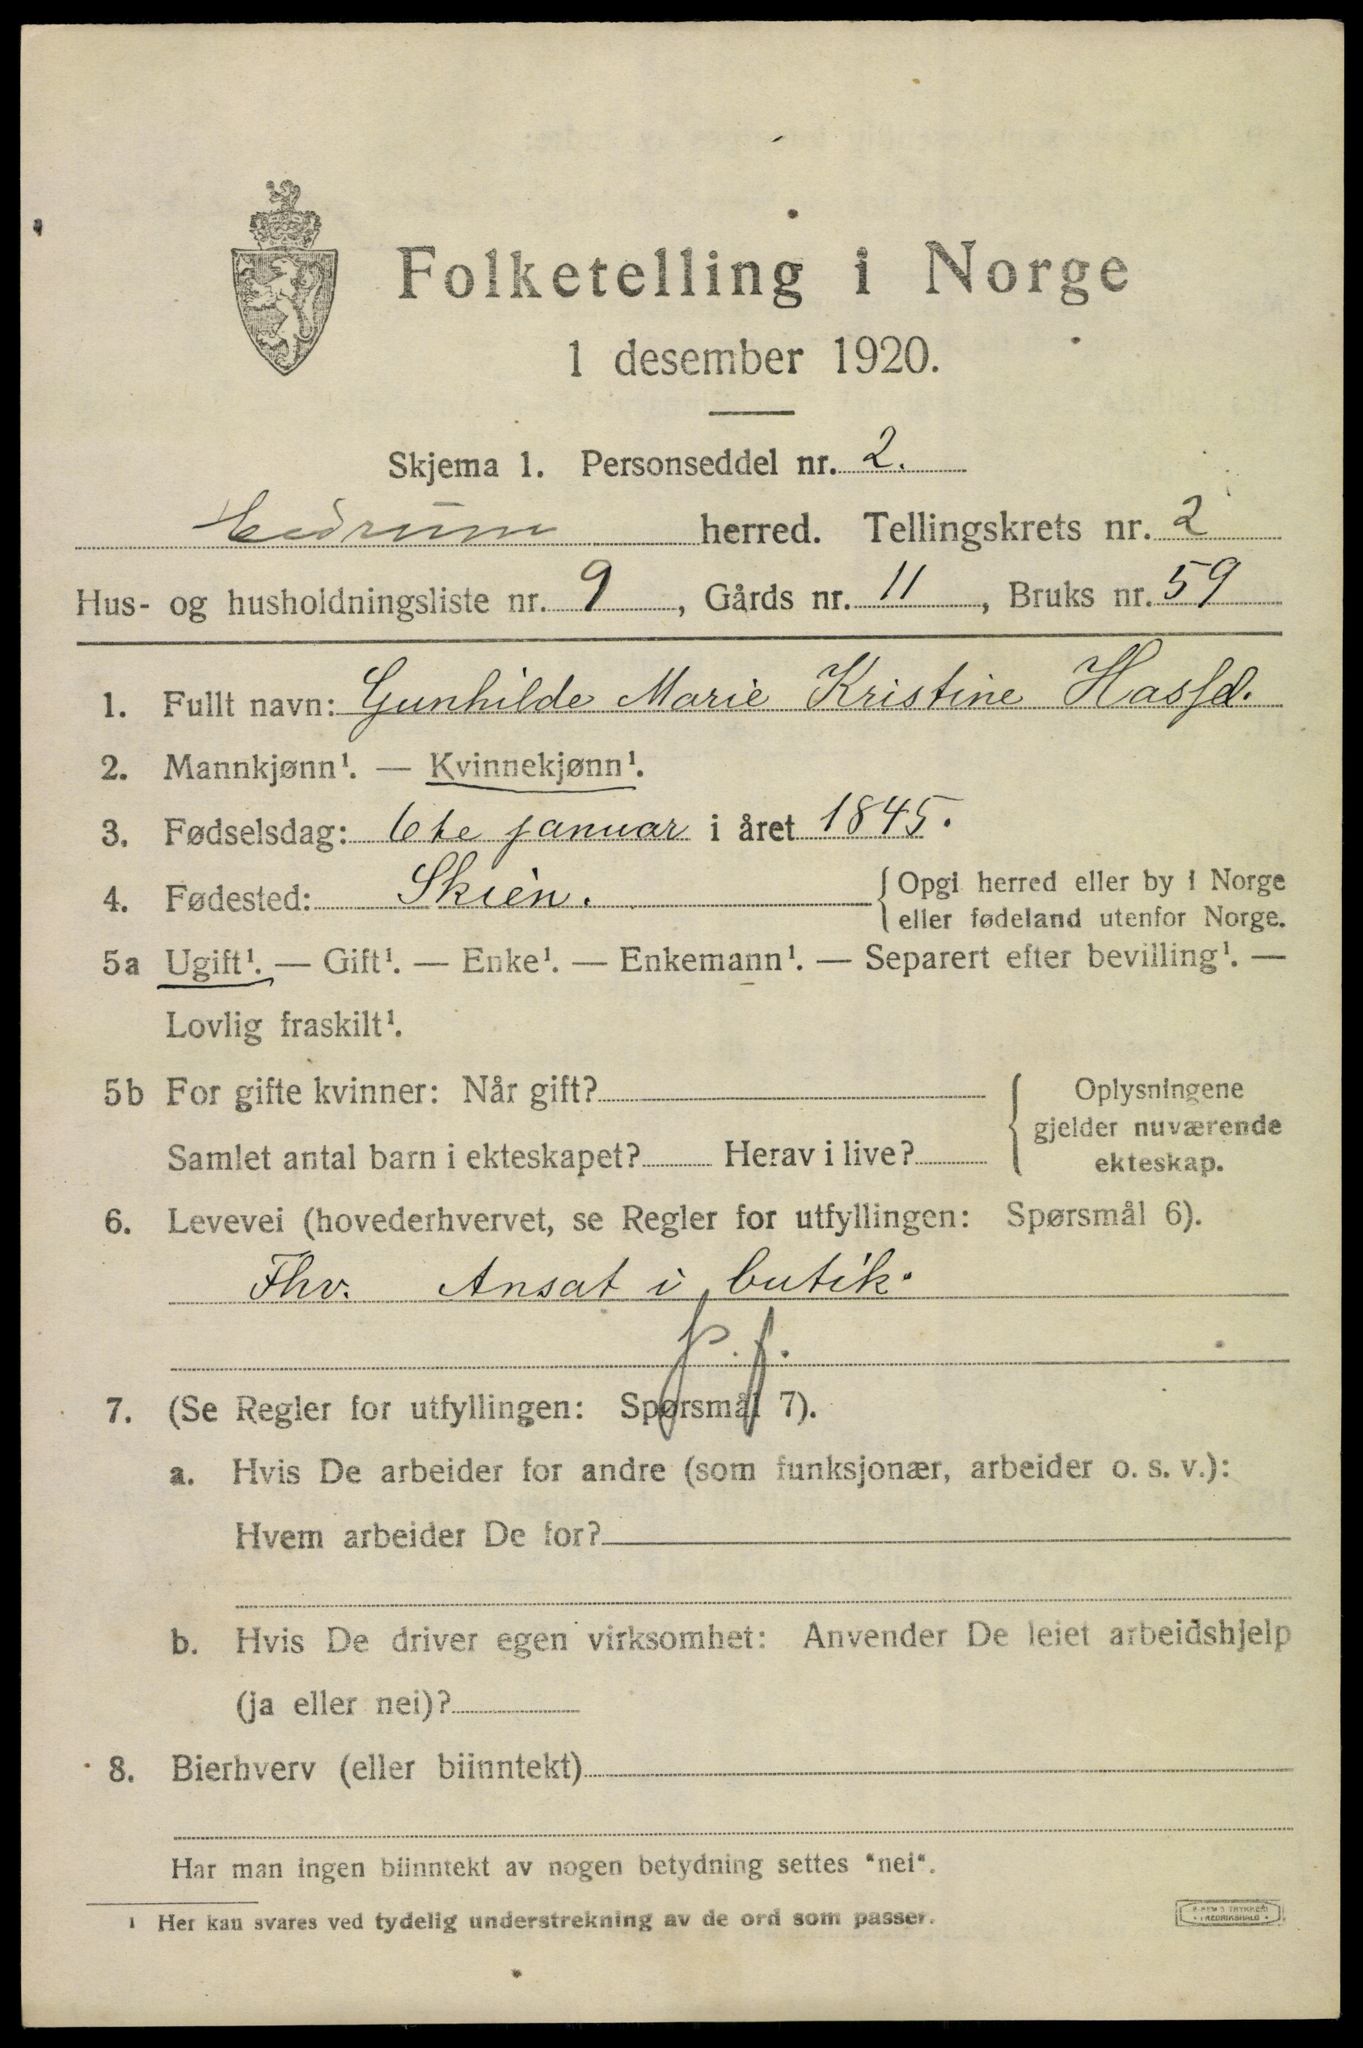 Folketelling i Norge
1 desember 1920.
Skjema 1. Personseddel nr. 2.
herred. Tellingskrets nr. 2
Hus- og husholdningsliste nr. 9, Gårds nr. 11, Bruks nr. 59
1. Fullt navn: Gunhilde Marie Kristine
2. Mannkjønn¹. — Kvinnekjønn¹.
3. Fødselsdag: 6te januar i året 1845.
4. Fødested: Skien. { Opgi herred eller by i Norge
eller fødeland utenfor Norge.
5a Ugift¹. — Gift¹. — Enke¹. — Enkemann¹. — Separert efter bevilling¹. —
Lovlig fraskilt¹.
5b For gifte kvinner: Når gift? { Oplysningene
gjelder nuværende
Samlet antal barn i ekteskapet? Herav i live?
ekteskap.
6. Levevei (hovederhvervet, se Regler for utfyllingen: Spørsmål 6).
Fhv. Ansat i butik.
p.f.
7. (Se Regler for utfyllingen: Spørsmål 7).
a. Hvis De arbeider for andre (som funksjonær, arbeider o. s. v.):
Hvem arbeider De for?
b. Hvis De driver egen virksomhet: Anvender De leiet arbeidshjelp
(ja eller nei)?
8. Bierhverv (eller biinntekt)
Har man ingen biinntekt av nogen betydning settes "nei".
¹ Her kan svares ved tydelig understrekning av de ord som passer.